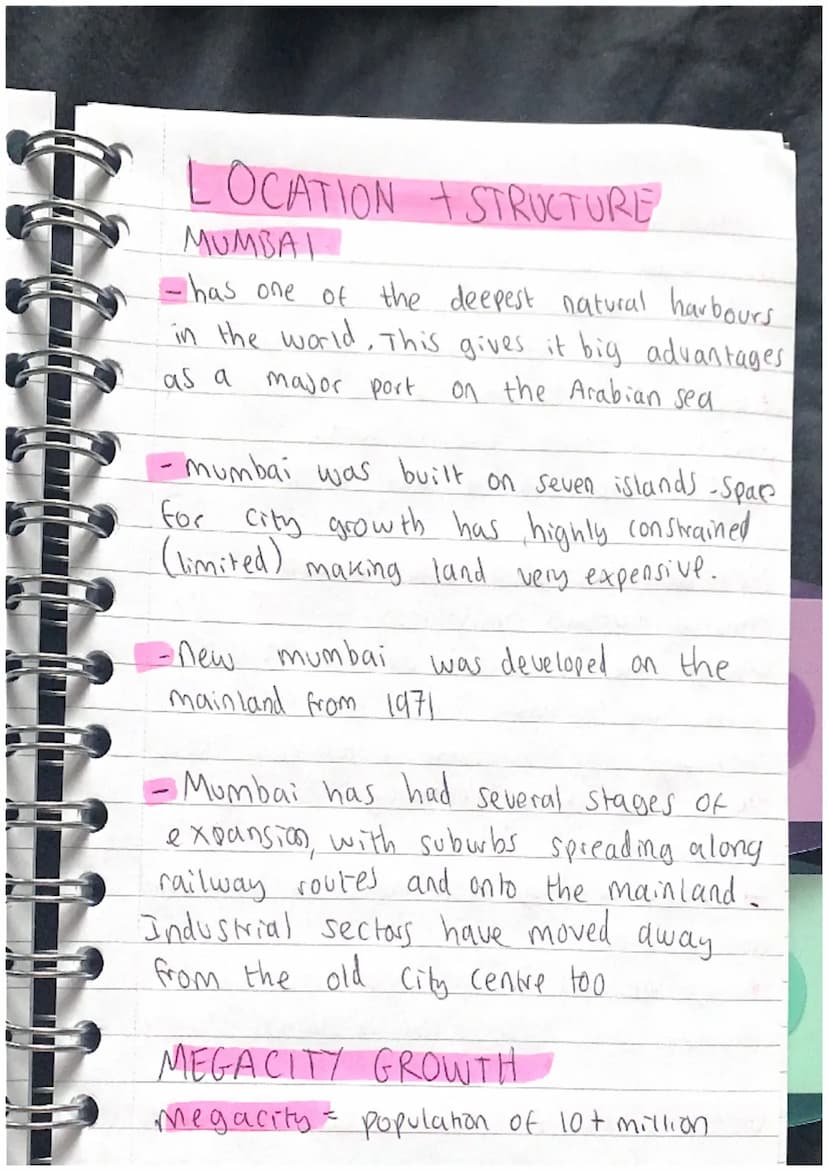 LOCATION + STRUCTURE
MUMBAI
- has one of the deepest natural harbours
in the world. This gives it big advantages
as a major port on the Arabian sea
- mumbai was built on seven islands - space
for city growth has highly constrained
(limited) making land very expensive.
- New mumbai was developed on the
mainland from 1971
- Mumbai has had several stages of
expansion, with suburbs spreading along
railway routes and onto the mainland.
Industrial sectors have moved away
from the old city centre too
MEGACITY GROWTH
Megacity = population of 10+ million